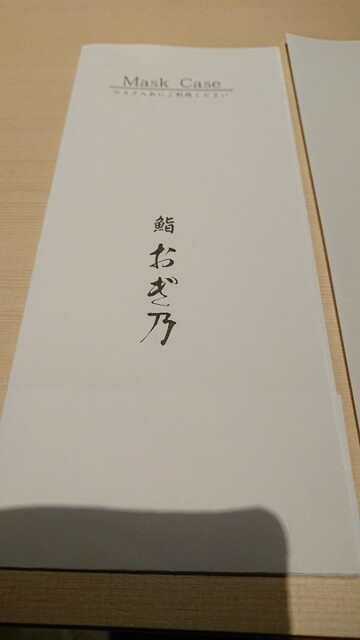 Mask Case
マスク入れにご利用ください
鮨 おぎ乃